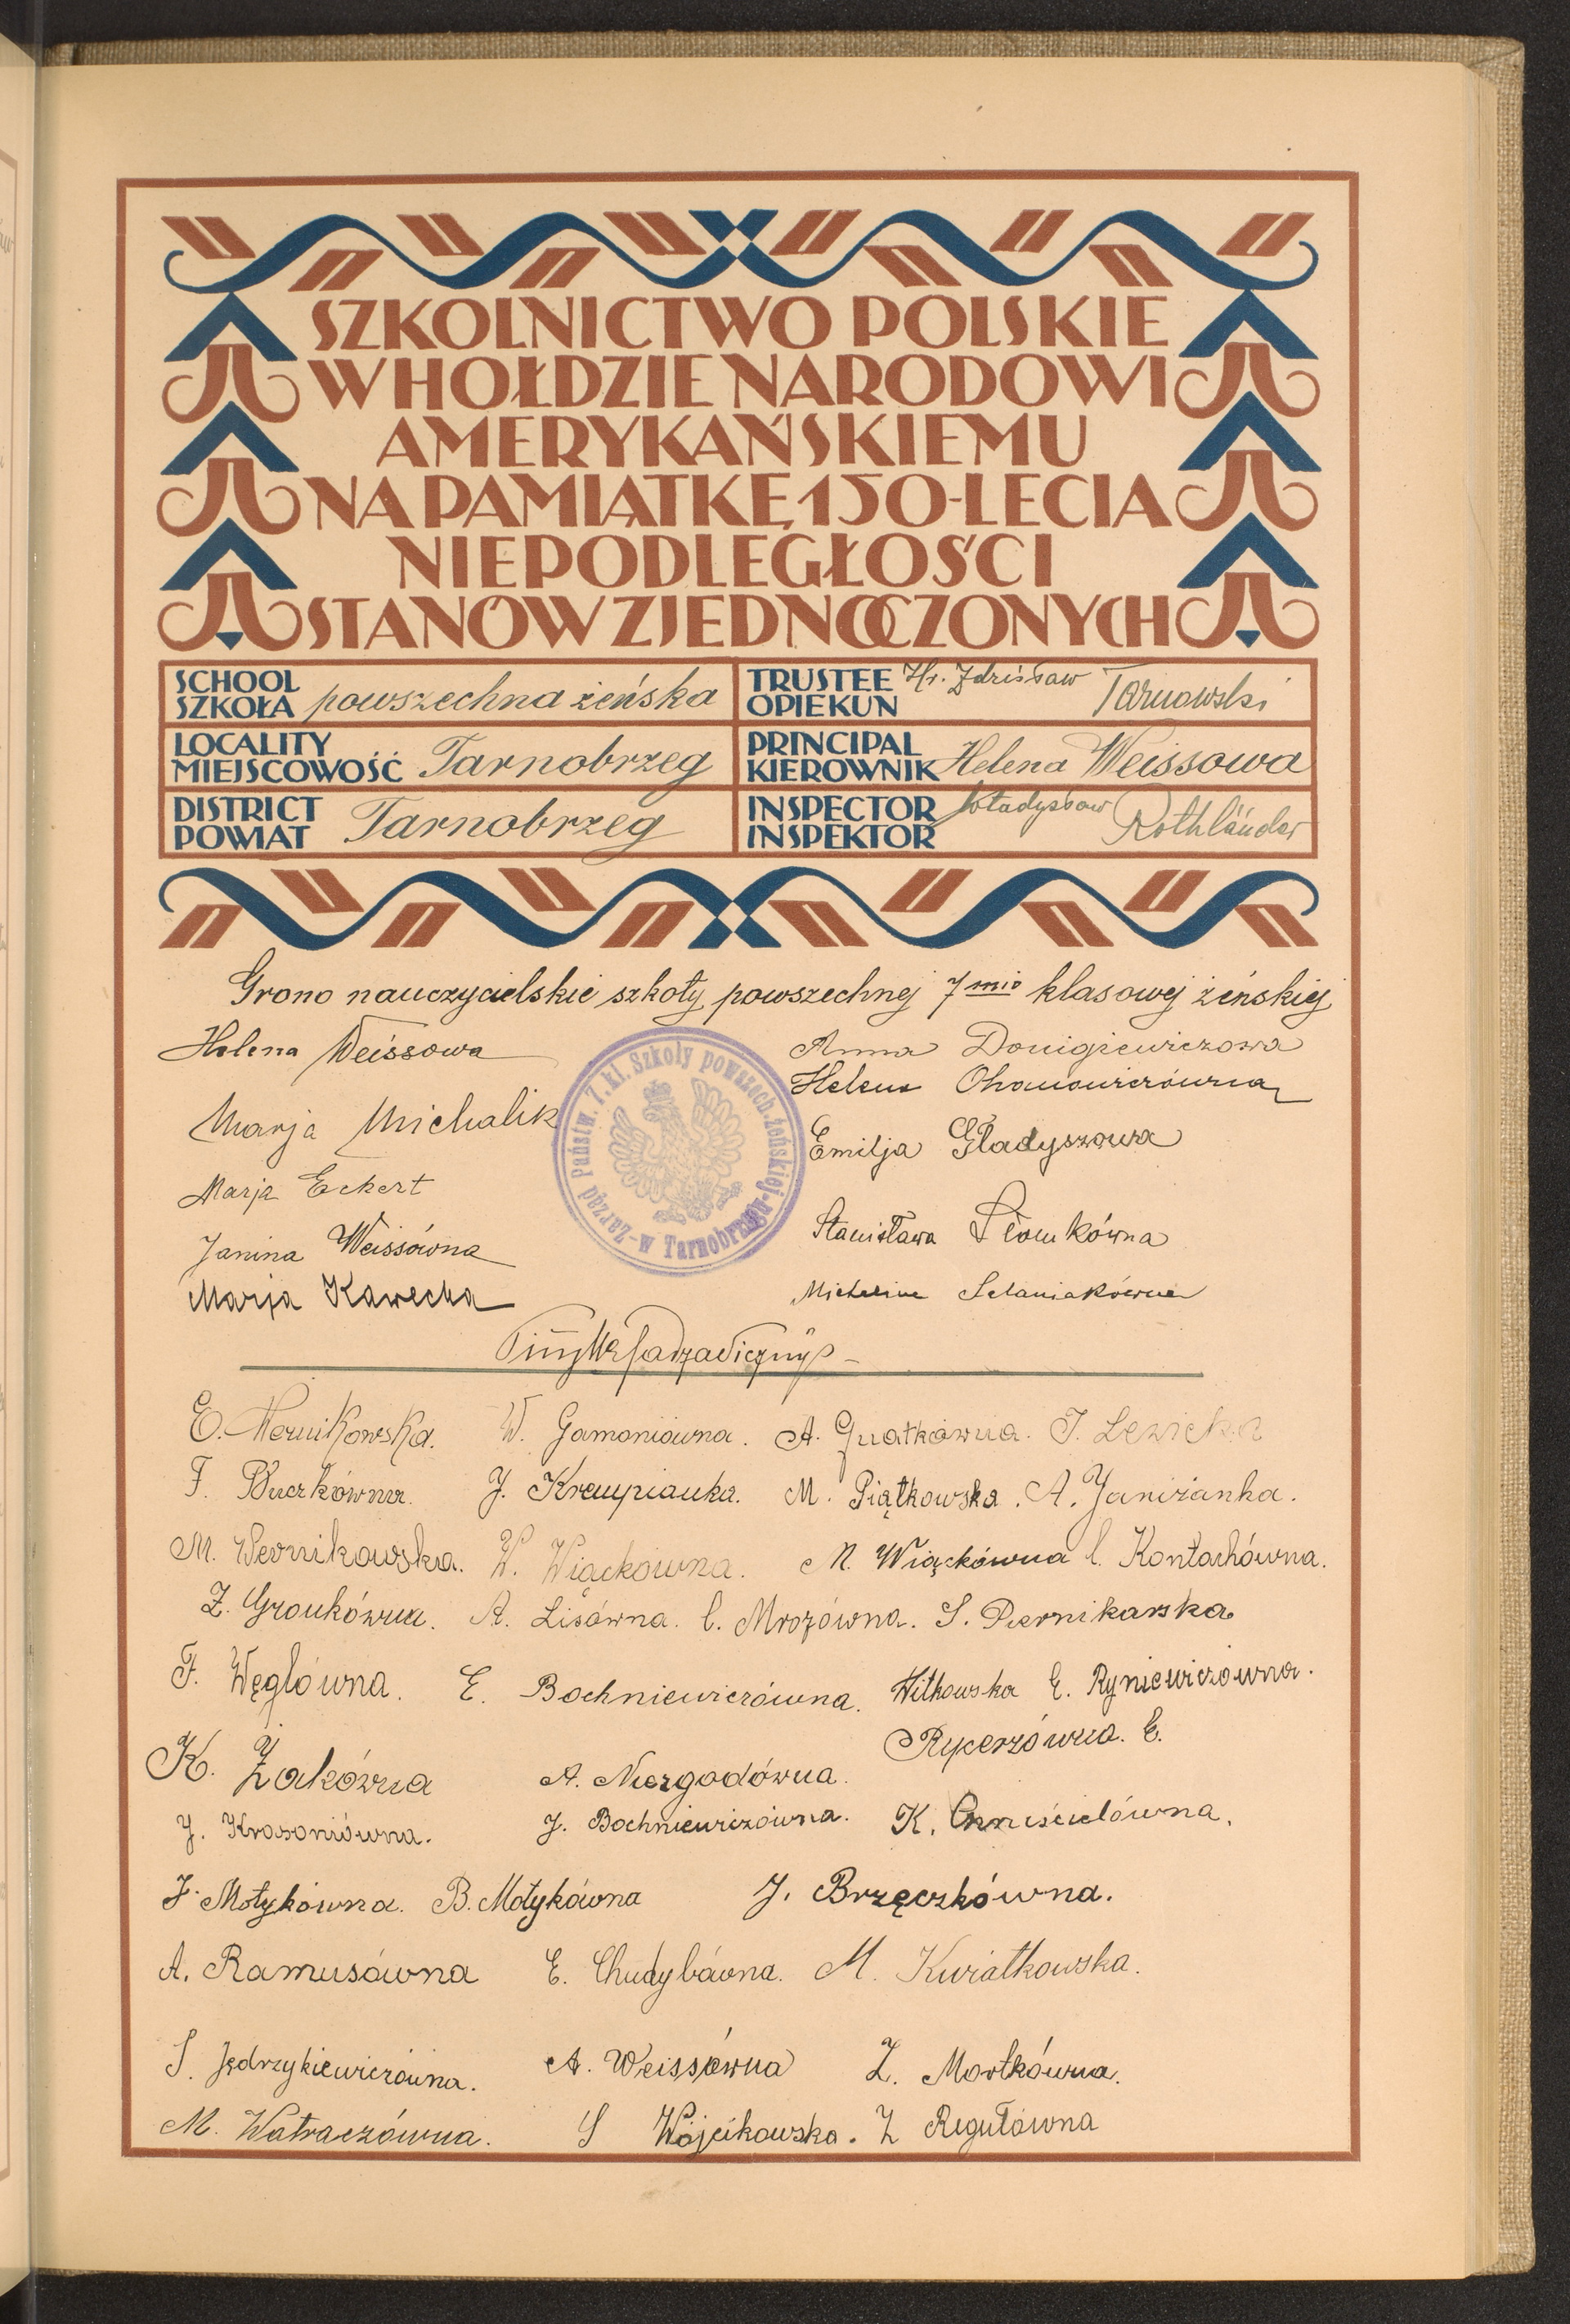 SZKOLNICTWO POLSKIE
W HOŁDZIE NARODOWI
AMERYKAŃSKIEMU
NA PAMIĄTKĘ 150-LECIA
NIEPODLEGŁOŚCI
STANÓW ZJEDNOCZONYCH
SCHOOL SZKOŁA powszechna żeńska
TRUSTEE OPIEKUN Hr. Zdzisław Tarnowski
LOCALITY MIEJSCOWOŚĆ Tarnobrzeg
PRINCIPAL KIEROWNIK Helena Weissowa
DISTRICT POWIAT Tarnobrzeg
INSPECTOR INSPEKTOR Władysław Rothländer
Grono nauczycielskie szkoły powszechnej 7mio klasowej żeńskiej
Helena Weissowa
Anna Donigiewiczowa
Helena Ohanowiczówna
Marja Michalik
Emilja Gładyszowa
Marja Eckert
Janina Weissówna
Stanisława
Marja Kawecka
Zarząd Państw. 7. kl. Szkoły powszech. żeńskiej - w Tarnobrzegu -
E. Wernikowska. W. Gamoniówna. A. J. Lewicka
F. Buczkówna. J. Krempianka. M. Piątkowska. A. Janiżanka.
M. Wernikowska. W. Wiąckówna. M. Wiąckówna C.
Z. Gronkówna. A. Lisówna. C. Mrozówna. S. Piernikarska
F. Węglówna. E. Bochniewiczówna. Witkowska E. Ryniewiczówna.
Rycerzówna. E.
K. Żakówna A. Niezgodówna.
J. Krasoniówna. J. Bochniewiczówna. K.
J. Motykówna. B. Motykówna J. Brzęczkówna.
A. Ramusówna E. Chudybówna. M. Kwiatkowska.
S. Jędrzykiewiczówna. A. Weissówna Z. Mortkówna.
M. Watraczówna. S Wójcikowska. Z Regułówna